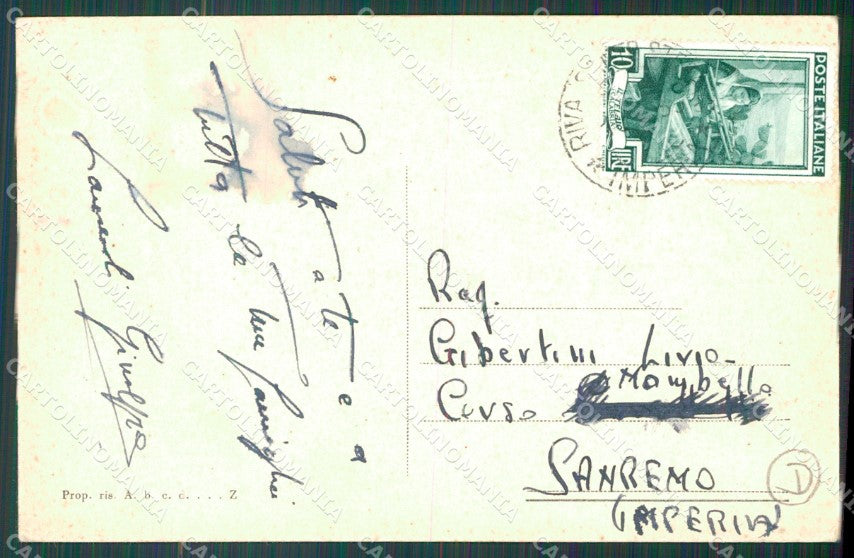 Saluti a te e a
tutta la tua famiglia
Giuseppe
Prop. ris. A. b. c. c. . . . Z
RIVA
IMPERIA
10
LIRE
POSTE ITALIANE
Rag.
Gibertini Livio
Corso Mombello
SANREMO
(IMPERIA)
D
CARTOLINOMANIA